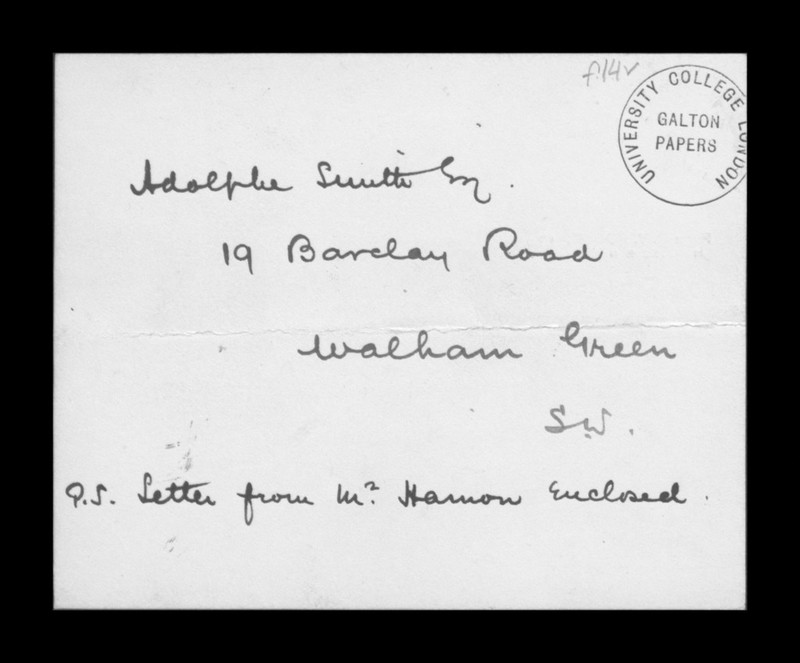 f.14v
UNIVERSITY COLLEGE LONDON
GALTON
PAPERS
Adolphe Smith Esq.
19 Barclay Road
Walham Green
S.W.
P.S. Letter from Mr. Hamon Enclosed.